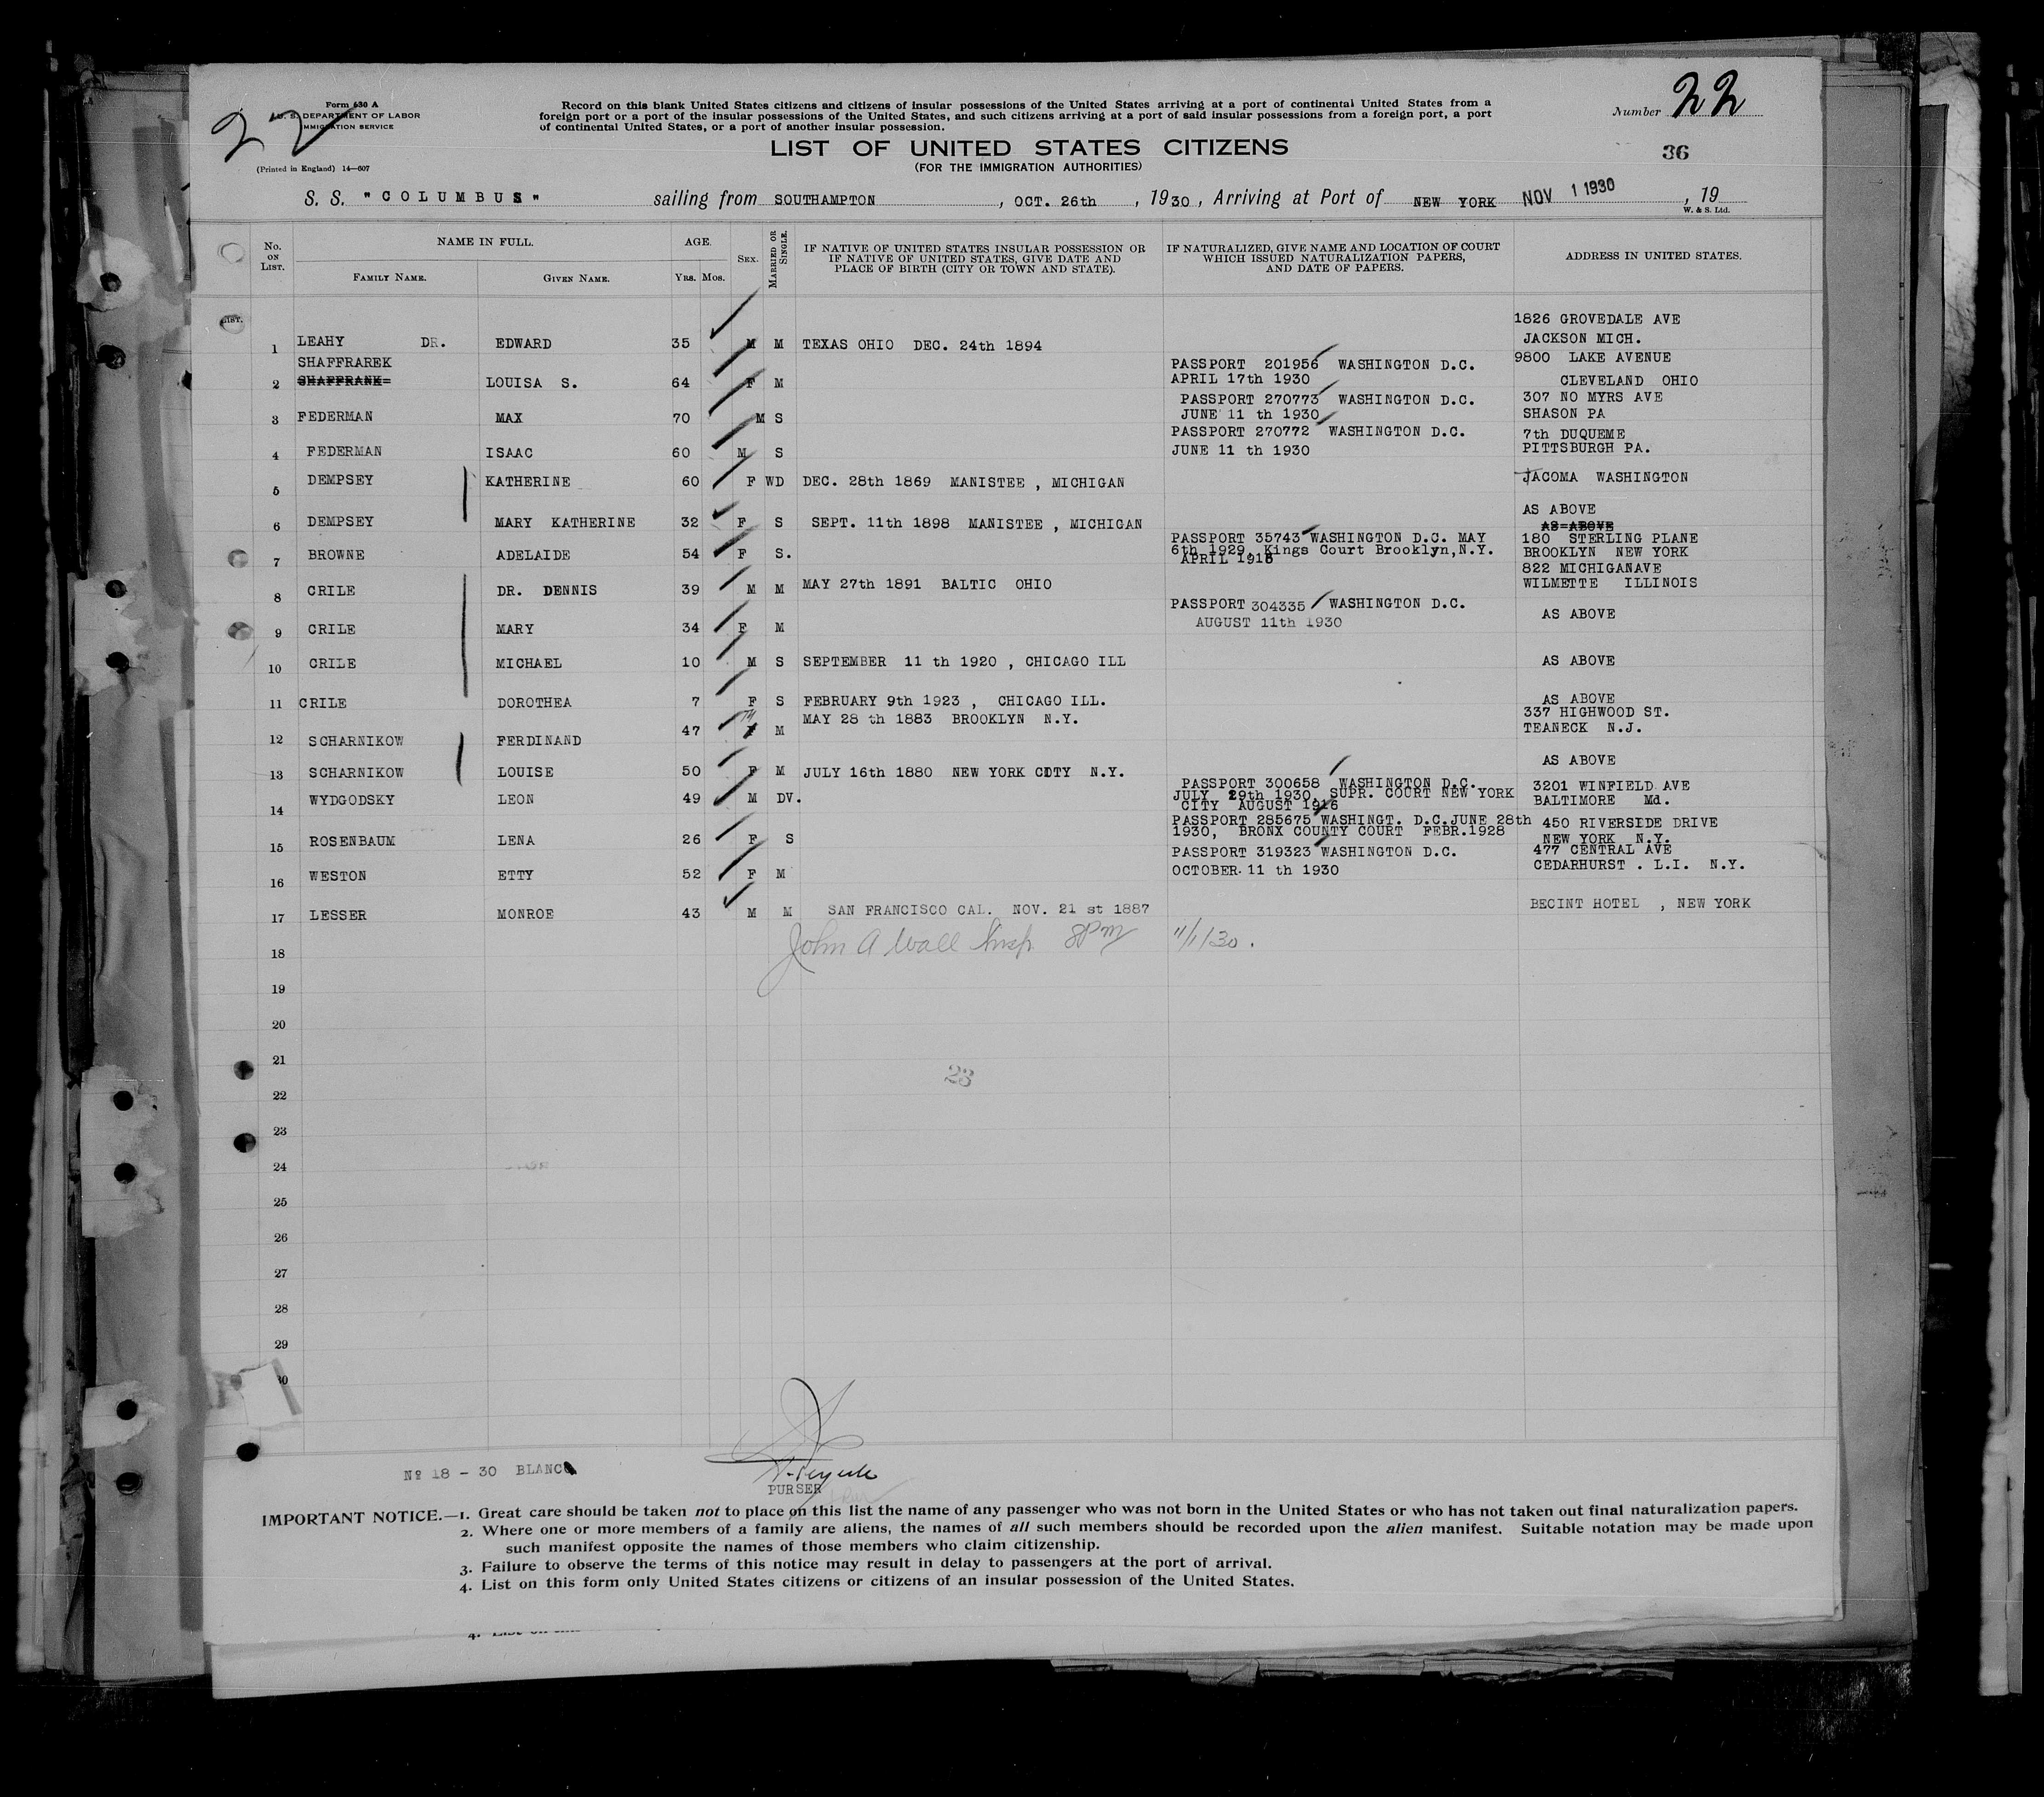 22
Form 630 A
U. S. DEPARTMENT OF LABOR
IMMIGRATION SERVICE
(Printed in England) 14—607
Record on this blank United States citizens and citizens of insular possessions of the United States arriving at a port of continental United States from a
foreign port or a port of the insular possessions of the United States, and such citizens arriving at a port of said insular possessions from a foreign port, a port
of continental United States, or a port of another insular possession.
Number 22
LIST OF UNITED STATES CITIZENS
(FOR THE IMMIGRATION AUTHORITIES)
36
S. S. "COLUMBUS" sailing from SOUTHAMPTON, OCT. 26th, 1930, Arriving at Port of NEW YORK NOV 1 1930, 19
W. & S. Ltd.
No. ON LIST. NAME IN FULL. FAMILY NAME. GIVEN NAME. AGE. Yrs. Mos. SEX. MARRIED OR SINGLE. IF NATIVE OF UNITED STATES INSULAR POSSESSION OR IF NATIVE OF UNITED STATES, GIVE DATE AND PLACE OF BIRTH (CITY OR TOWN AND STATE). IF NATURALIZED, GIVE NAME AND LOCATION OF COURT WHICH ISSUED NATURALIZATION PAPERS, AND DATE OF PAPERS. ADDRESS IN UNITED STATES.
LIST.
1 LEAHY DR. EDWARD 35 M M TEXAS OHIO DEC. 24th 1894 1826 GROVEDALE AVE JACKSON MICH.
2 SHAFFRAREK SHAFFRANK= LOUISA S. 64 F M PASSPORT 201956 WASHINGTON D.C. APRIL 17th 1930 9800 LAKE AVENUE CLEVELAND OHIO
3 FEDERMAN MAX 70 M S PASSPORT 270773 WASHINGTON D.C. JUNE 11 th 1930 307 NO MYRS AVE SHASON PA
4 FEDERMAN ISAAC 60 M S PASSPORT 270772 WASHINGTON D.C. JUNE 11 th 1930 7th DUQUEME PITTSBURGH PA.
5 DEMPSEY KATHERINE 60 F WD DEC. 28th 1869 MANISTEE , MICHIGAN JACOMA WASHINGTON
6 DEMPSEY MARY KATHERINE 32 F S SEPT. 11th 1898 MANISTEE , MICHIGAN AS ABOVE AS=ABOVE
7 BROWNE ADELAIDE 54 F S. PASSPORT 35743 WASHINGTON D.C. MAY 6th 1929, Kings Court Brooklyn,N.Y. APRIL 1918 180 STERLING PLANE BROOKLYN NEW YORK
8 CRILE DR. DENNIS 39 M M MAY 27th 1891 BALTIC OHIO 822 MICHIGANAVE WILMETTE ILLINOIS
9 CRILE MARY 34 F M PASSPORT 304335 WASHINGTON D.C. AUGUST 11th 1930 AS ABOVE
10 CRILE MICHAEL 10 M S SEPTEMBER 11 th 1920 , CHICAGO ILL AS ABOVE
11 CRILE DOROTHEA 7 F S FEBRUARY 9th 1923 , CHICAGO ILL. AS ABOVE
12 SCHARNIKOW FERDINAND 47 M M MAY 28 th 1883 BROOKLYN N.Y. 337 HIGHWOOD ST. TEANECK N.J.
13 SCHARNIKOW LOUISE 50 F M JULY 16th 1880 NEW YORK CITY N.Y. AS ABOVE
14 WYDGODSKY LEON 49 M DV. PASSPORT 300658 WASHINGTON D.C. JULY 29th 1930, SUPR. COURT NEW YORK CITY AUGUST 1916 3201 WINFIELD AVE BALTIMORE Md.
15 ROSENBAUM LENA 26 F S PASSPORT 285675 WASHINGT. D.C.JUNE 28th 1930, BRONX COUNTY COURT FEBR.1928 450 RIVERSIDE DRIVE NEW YORK N.Y.
16 WESTON ETTY 52 F M PASSPORT 319323 WASHINGTON D.C. OCTOBER 11 th 1930 477 CENTRAL AVE CEDARHURST . L.I. N.Y.
17 LESSER MONROE 43 M M SAN FRANCISCO CAL. NOV. 21 st 1887 BECINT HOTEL , NEW YORK
18 John A Wall Insp. 8Pm 11/1/30.
19
20
21
23
22
23
24
25
26
27
28
29
30
Nº 18 - 30 BLANCO
PURSER
IMPORTANT NOTICE.—1. Great care should be taken not to place on this list the name of any passenger who was not born in the United States or who has not taken out final naturalization papers.
2. Where one or more members of a family are aliens, the names of all such members should be recorded upon the alien manifest. Suitable notation may be made upon
such manifest opposite the names of those members who claim citizenship.
3. Failure to observe the terms of this notice may result in delay to passengers at the port of arrival.
4. List on this form only United States citizens or citizens of an insular possession of the United States.